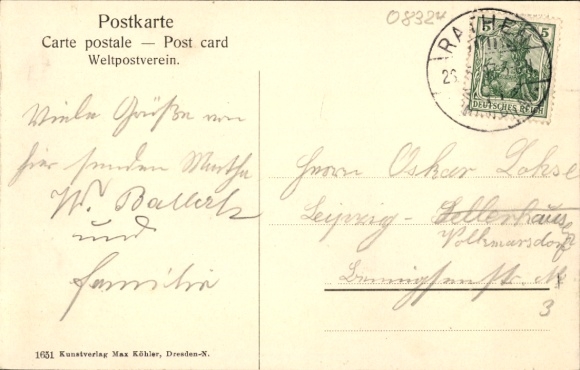 Postkarte
Carte postale — Post card
Weltpostverein.
08324
RATHE
5 5
26.
DEUTSCHES REICH
Viele Grüße von
hier senden Martha
W. Ballerk
und
Familie
Herrn Oskar Lohse
Leipzig - Sellerhausen
Volkmarsdorf
Bennigsenstr. No
3
1651 Kunstverlag Max Köhler, Dresden-N.